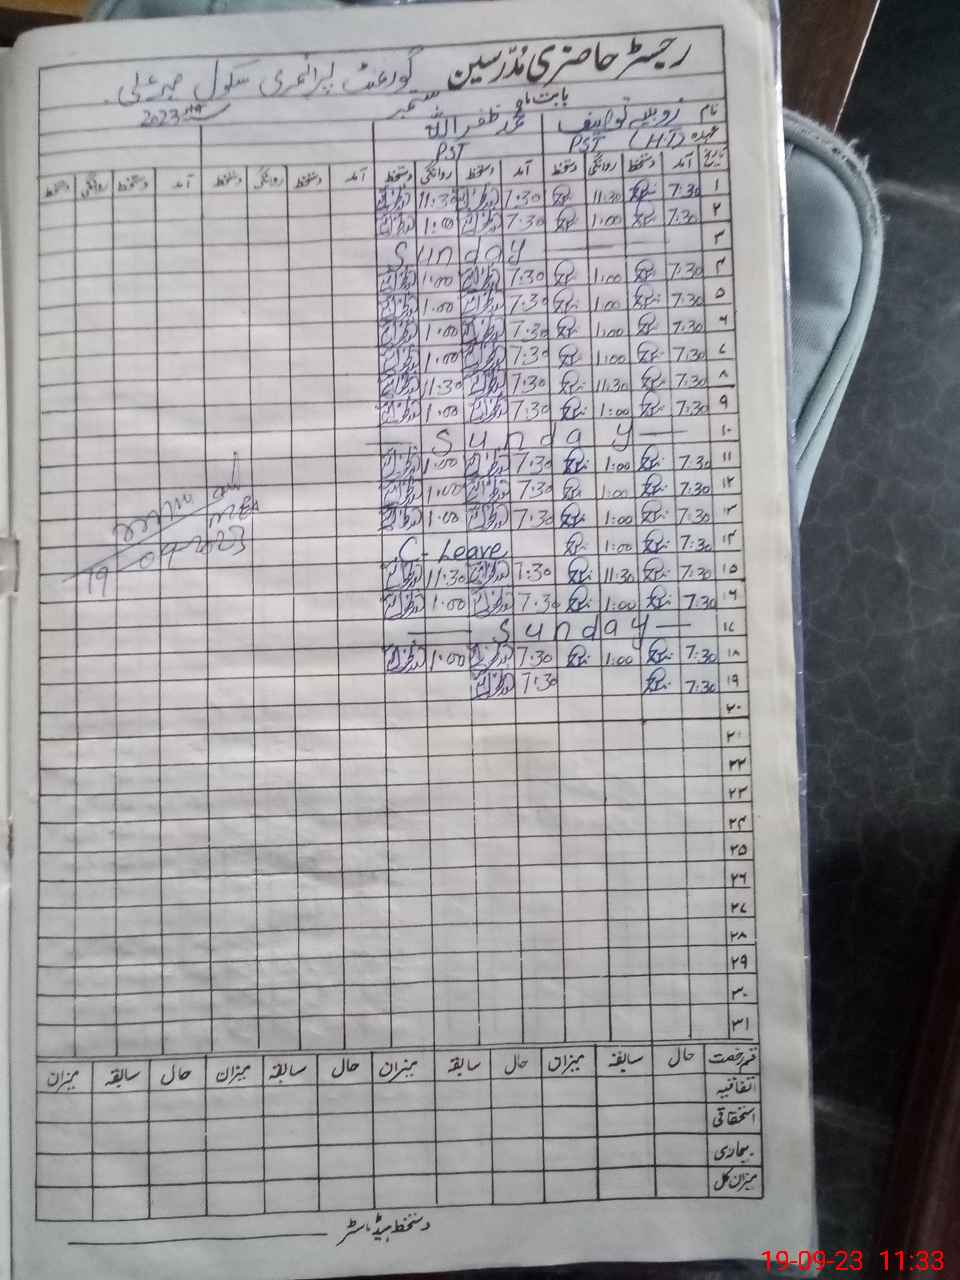 رجسٹر حاضری مدرسین گورنمنٹ پرائمری سکول
بابت ماہ ستمبر 2023
نام زوبیہ محمد ظفر اللہ
عہدہ PST (H.T) PST
تاریخ آمد دستخط روانگی دستخط آمد دستخط روانگی دستخط آمد دستخط روانگی دستخط آمد دستخط روانگی دستخط
۱ 7:30 11:30 7:30 11:30
۲ 7:30 1:00 7:30 1:00
۳ Sunday
۴ 7:30 1:00 7:30 1:00
۵ 7:30 1:00 7:30 1:00
۶ 7:30 1:00 7:30 1:00
۷ 7:30 1:00 7:30 1:00
۸ 7:30 11:30 7:30 11:30
۹ 7:30 1:00 7:30 1:00
۱۰ Sunday
۱۱ 7:30 1:00 7:30 1:00
۱۲ 7:30 1:00 7:30 1:00
۱۳ 7:30 1:00 7:30 1:00
۱۴ 7:30 1:00 C-Leave
۱۵ 7:30 11:30 7:30 11:30
۱۶ 7:30 1:00 7:30 1:00
۱۷ Sunday
۱۸ 7:30 1:00 7:30 1:00
۱۹ 7:30 7:30
MEA
19-09-2023
۲۰
۲۱
۲۲
۲۳
۲۴
۲۵
۲۶
۲۷
۲۸
۲۹
۳۰
۳۱
قسم رخصت حال سابقہ میزان حال سابقہ میزان حال سابقہ میزان حال سابقہ میزان
اتفاقیہ
استحقاقی
بیماری
میزان کل
دستخط ہیڈ ماسٹر
19-09-23 11:33